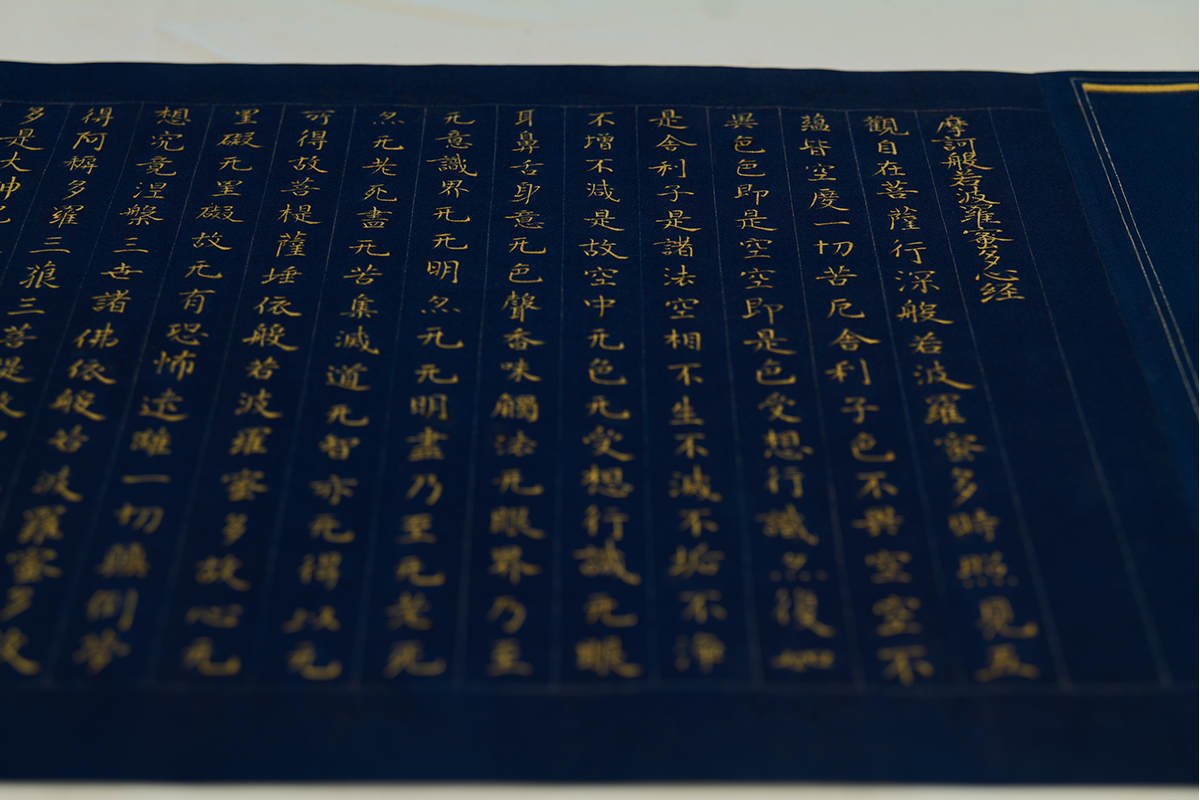 摩訶般若波羅蜜多心経
觀自在菩薩行深般若波羅蜜多時照見五
蘊皆空度一切苦厄舍利子色不異空空不
異色色即是空空即是色受想行識亦復如
是舍利子是諸法空相不生不滅不垢不淨
不增不減是故空中无色无受想行識无眼
耳鼻舌身意无色聲香味觸法无眼界乃至
无意識界无无明亦无无明盡乃至无老死
亦无老死盡无苦集滅道无智亦无得以无
所得故菩提薩埵依般若波羅蜜多故心无
罣礙无罣礙故无有恐怖遠離一切顛倒夢
想究竟涅槃三世諸佛依般若波羅蜜多故
得阿耨多羅三藐三菩提故
多是大神咒